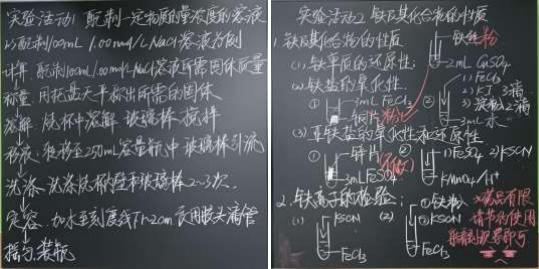 实验活动1 配制一定物质的量浓度的溶液
以配制100mL 1.00mol/L NaCl溶液为例
计算:配制100mL1.00mol/LNaCl溶液所需固体质量
称量:用托盘天平称出所需的固体
溶解:烧杯中溶解 玻璃棒搅拌
移液:转移至250mL容量瓶中 玻璃棒引流
洗涤:洗涤烧杯壁和玻璃棒2~3次.
定容:加水至刻度线下1~2cm 改用胶头滴管
摇匀、装瓶
实验活动2 铁及其化合物的性质
1.铁及其化合物的性质
铁丝 粉
(1)铁单质的还原性:
2mL CuSO4
(2)铁盐的氧化性.
① 3mL FeCl3
铜片 粉
② 1)FeCl3
2)KI 3滴
3)淀粉2滴
3mL水
(3)亚铁盐的氧化性和还原性
① 锌片
3mLFeSO4
② 1)FeSO4 2)KSCN
KMnO4/H+
2.铁离子的检验:
(1) KSCN
FeCl3
(2) KSCN
FeCl3
①铁粉
药品有限